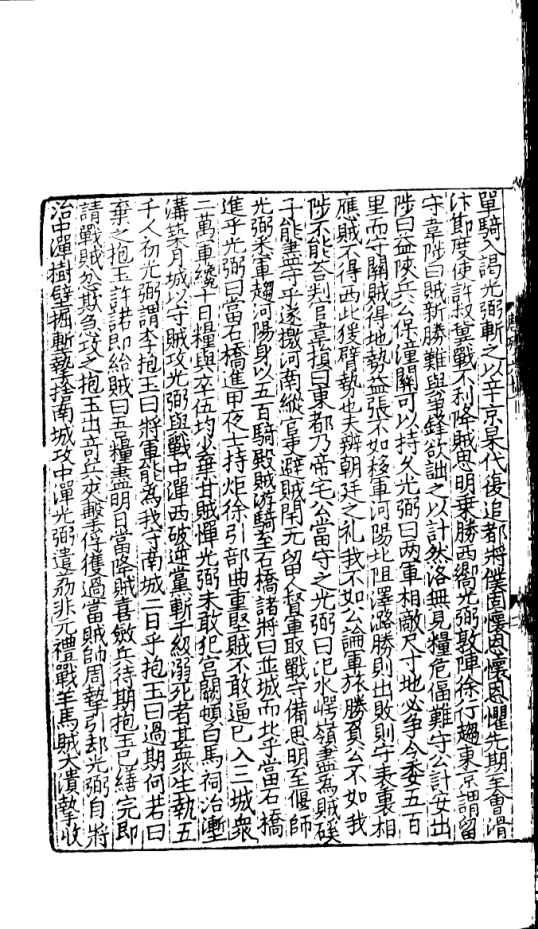 單騎入謁光弼斬之以辛京杲代復追都將僕固懷恩懷恩懼先期至會滑
汴節度使許叔冀戰不利降賊思明乗勝西嚮光弼敦陣徐行趨東京謂留
守韋陟曰賊新勝難與爭鋒欲詘之以計然洛無見糧危偪難守公計安出
陟曰益陝兵公保潼關可以持久光弼曰两軍相敵尺寸地必争今委五百
里而守關賊得地勢益張不如移軍河陽北阻澤潞勝則出敗則守表裏相
應賊不得西此猨臂勢也夫辨朝廷之礼我不如公論軍旅勝負公不如我
陟不能荅判官韋損曰東都乃帝宅公當守之光弼曰汜水崿嶺盡為賊蹊
子能盡守乎遂檄河南縱官吏避賊閈无留人督軍取戰守備思明至偃師
光弼悉軍趨河陽身以五百騎殿賊游騎至石橋諸將曰並城而北乎當石橋
進乎光弼曰當石橋進甲夜士持炬徐引部曲重堅賊不敢逼已入三城衆
二萬軍纔十日糧與卒伍均少棄甘賊憚光弼未敢犯宫闕頓白馬祠治塹
溝築月城以守賊攻光弼與戰中潬西破逆黨斬千級溺死者甚衆生執五
千人初光弼謂李抱玉曰將軍能為我守南城二日乎抱玉曰過期何若曰
棄之抱玉許諾即紿賊曰吾糧盡明日當降賊喜斂兵待期抱玉已繕完即
請戰賊忿欺急攻之抱玉出竒兵夾擊俘獲過當賊帥周摯引却光弼自將
治中潬樹壁掘塹摯捨南城攻中潬光弼遣荔非元禮戰羊馬賊大潰摯收